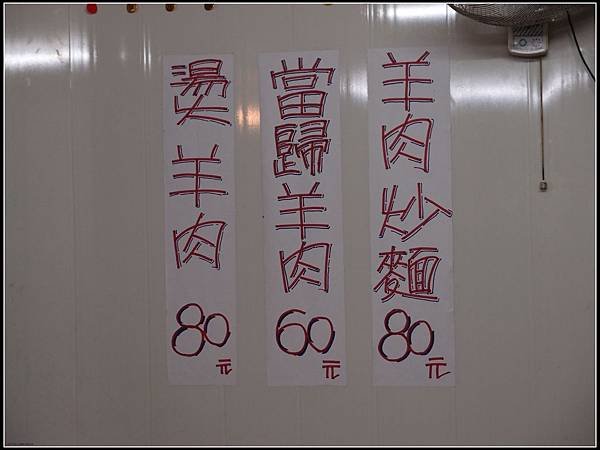 羊肉炒麵80元
當歸羊肉60元
燙羊肉80元